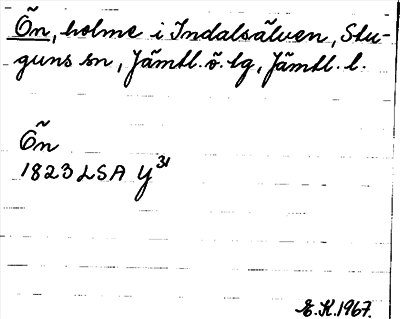 Ön, holme i Indalsälven, Stu-
guns sn, Jämtl. ö. tg, Jämtl. l.
Ön
1823 LSA Y³¹
E.K.1967.